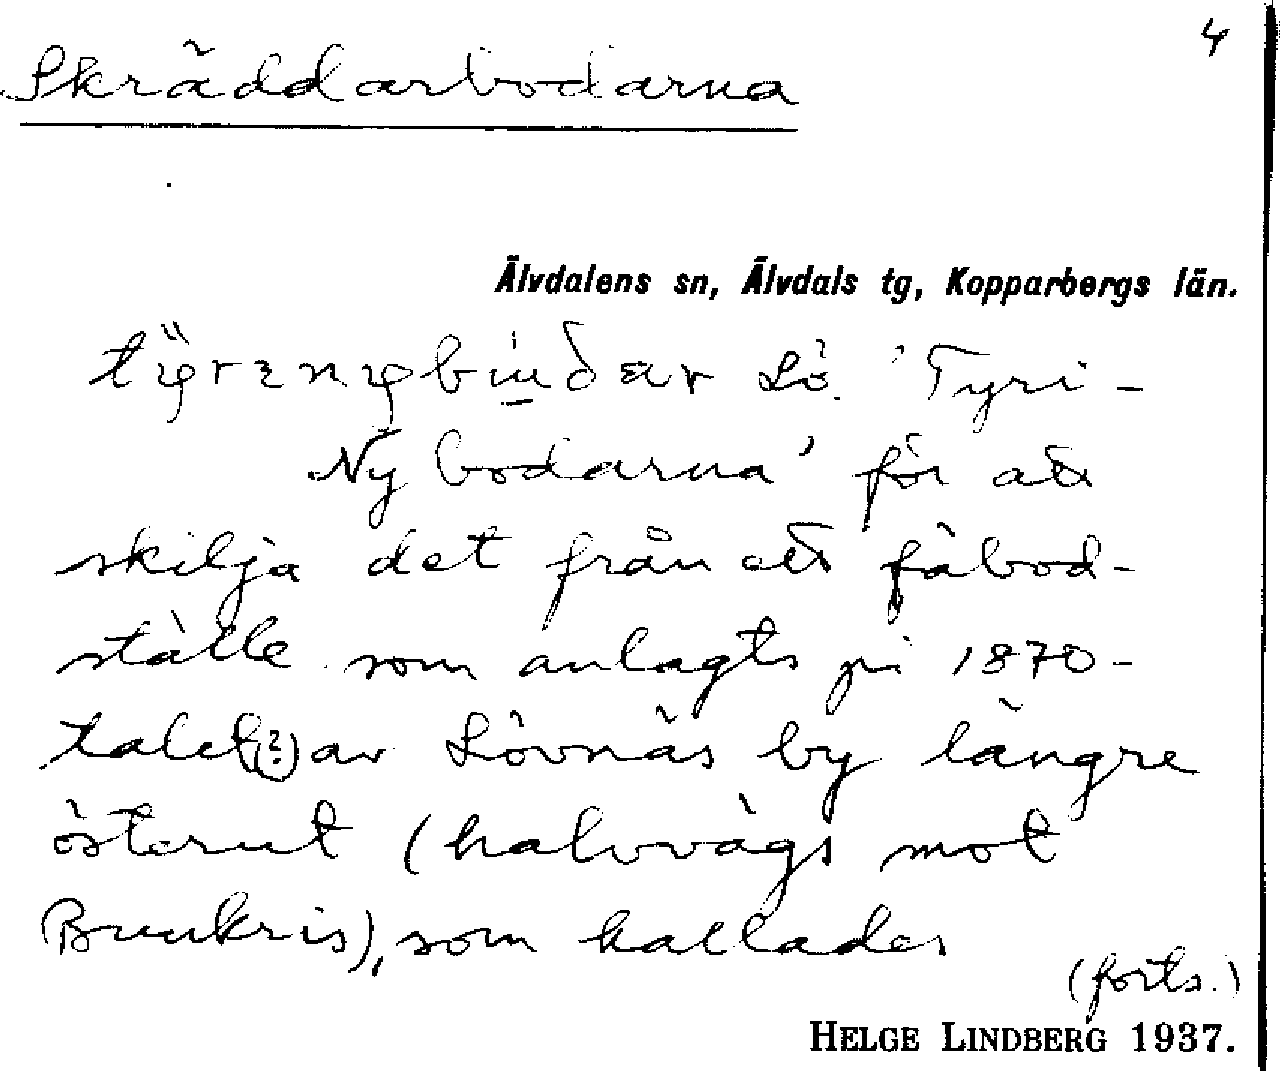 4
Skräddarbodarna
Älvdalens sn, Älvdals tg, Kopparbergs län.
Lö. 'Tyri-
Nybodarna' för att
skilja det från ett fäbod-
ställe som anlagts på 1870-
talet(?) av Lövnäs by längre
österut (halvvägs mot
Bunkris), som kallades
(forts.)
HELGE LINDBERG 1937.